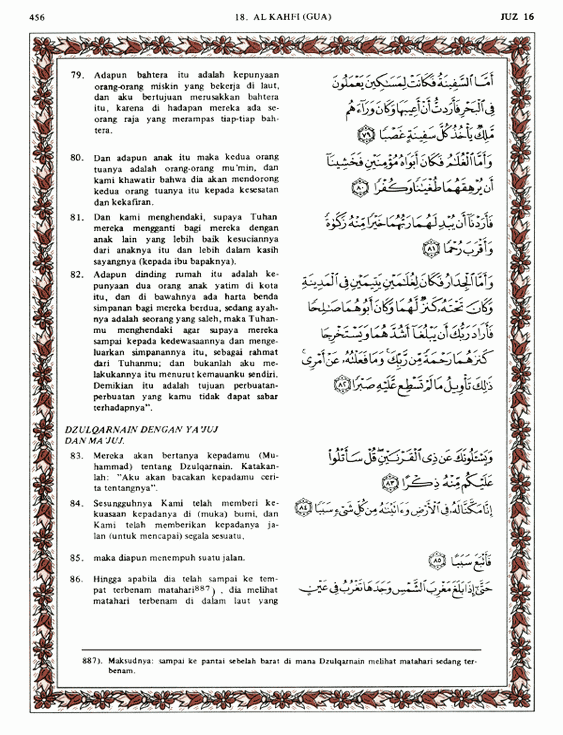 456
18. AL KAHFI (GUA)
JUZ 16
79. Adapun bahtera itu adalah kepunyaan
orang-orang miskin yang bekerja di laut,
dan aku bertujuan merusakkan bahtera
itu, karena di hadapan mereka ada se-
orang raja yang merampas tiap-tiap bah-
tera.
أَمَّا السَّفِينَةُ فَكَانَتْ لِمَسَاكِينَ يَعْمَلُونَ
فِي الْبَحْرِ فَأَرَدتُّ أَنْ أَعِيبَهَا وَكَانَ وَرَاءَهُم
مَّلِكٌ يَأْخُذُ كُلَّ سَفِينَةٍ غَصْبًا ﴿٧٩﴾
80. Dan adapun anak itu maka kedua orang
tuanya adalah orang-orang mu'min, dan
kami khawatir bahwa dia akan mendorong
kedua orang tuanya itu kepada kesesatan
dan kekafiran.
وَأَمَّا الْغُلَامُ فَكَانَ أَبَوَاهُ مُؤْمِنَيْنِ فَخَشِينَا
أَن يُرْهِقَهُمَا طُغْيَانًا وَكُفْرًا ﴿٨٠﴾
81. Dan kami menghendaki, supaya Tuhan
mereka mengganti bagi mereka dengan
anak lain yang lebih baik kesuciannya
dari anaknya itu dan lebih dalam kasih
sayangnya (kepada ibu bapaknya).
فَأَرَدْنَا أَن يُبْدِلَهُمَا رَبُّهُمَا خَيْرًا مِّنْهُ زَكَوٰةً
وَأَقْرَبَ رُحْمًا ﴿٨١﴾
82. Adapun dinding rumah itu adalah ke-
punyaan dua orang anak yatim di kota
itu, dan di bawahnya ada harta benda
simpanan bagi mereka berdua, sedang ayah-
nya adalah seorang yang saleh, maka Tuhan-
mu menghendaki agar supaya mereka
sampai kepada kedewasaannya dan menge-
luarkan simpanannya itu, sebagai rahmat
dari Tuhanmu; dan bukanlah aku me-
lakukannya itu menurut kemauanku sendiri.
Demikian itu adalah tujuan perbuatan-
perbuatan yang kamu tidak dapat sabar
terhadapnya".
وَأَمَّا الْجِدَارُ فَكَانَ لِغُلَامَيْنِ يَتِيمَيْنِ فِي الْمَدِينَةِ
وَكَانَ تَحْتَهُ كَنزٌ لَّهُمَا وَكَانَ أَبُوهُمَا صَالِحًا
فَأَرَادَ رَبُّكَ أَن يَبْلُغَا أَشُدَّهُمَا وَيَسْتَخْرِجَا
كَنزَهُمَا رَحْمَةً مِّن رَّبِّكَ وَمَا فَعَلْتُهُ عَنْ أَمْرِي
ذَٰلِكَ تَأْوِيلُ مَا لَمْ تَسْطِع عَّلَيْهِ صَبْرًا ﴿٨٢﴾
DZULQARNAIN DENGAN YA'JUJ
DAN MA'JUJ.
83. Mereka akan bertanya kepadamu (Mu-
hammad) tentang Dzulqarnain. Katakan-
lah: "Aku akan bacakan kepadamu ceri-
ta tentangnya".
وَيَسْأَلُونَكَ عَن ذِي الْقَرْنَيْنِ قُلْ سَأَتْلُوا
عَلَيْكُم مِّنْهُ ذِكْرًا ﴿٨٣﴾
84. Sesungguhnya Kami telah memberi ke-
kuasaan kepadanya di (muka) bumi, dan
Kami telah memberikan kepadanya ja-
lan (untuk mencapai) segala sesuatu.
إِنَّا مَكَّنَّا لَهُ فِي الْأَرْضِ وَءَاتَيْنَاهُ مِن كُلِّ شَيْءٍ سَبَبًا ﴿٨٤﴾
85. maka diapun menempuh suatu jalan.
فَأَتْبَعَ سَبَبًا ﴿٨٥﴾
86. Hingga apabila dia telah sampai ke tem-
pat terbenam matahari887) . dia melihat
matahari terbenam di dalam laut yang
حَتَّىٰ إِذَا بَلَغَ مَغْرِبَ الشَّمْسِ وَجَدَهَا تَغْرُبُ فِي عَيْنٍ
887). Maksudnya: sampai ke pantai sebelah barat di mana Dzulqarnain melihat matahari sedang ter-
benam.